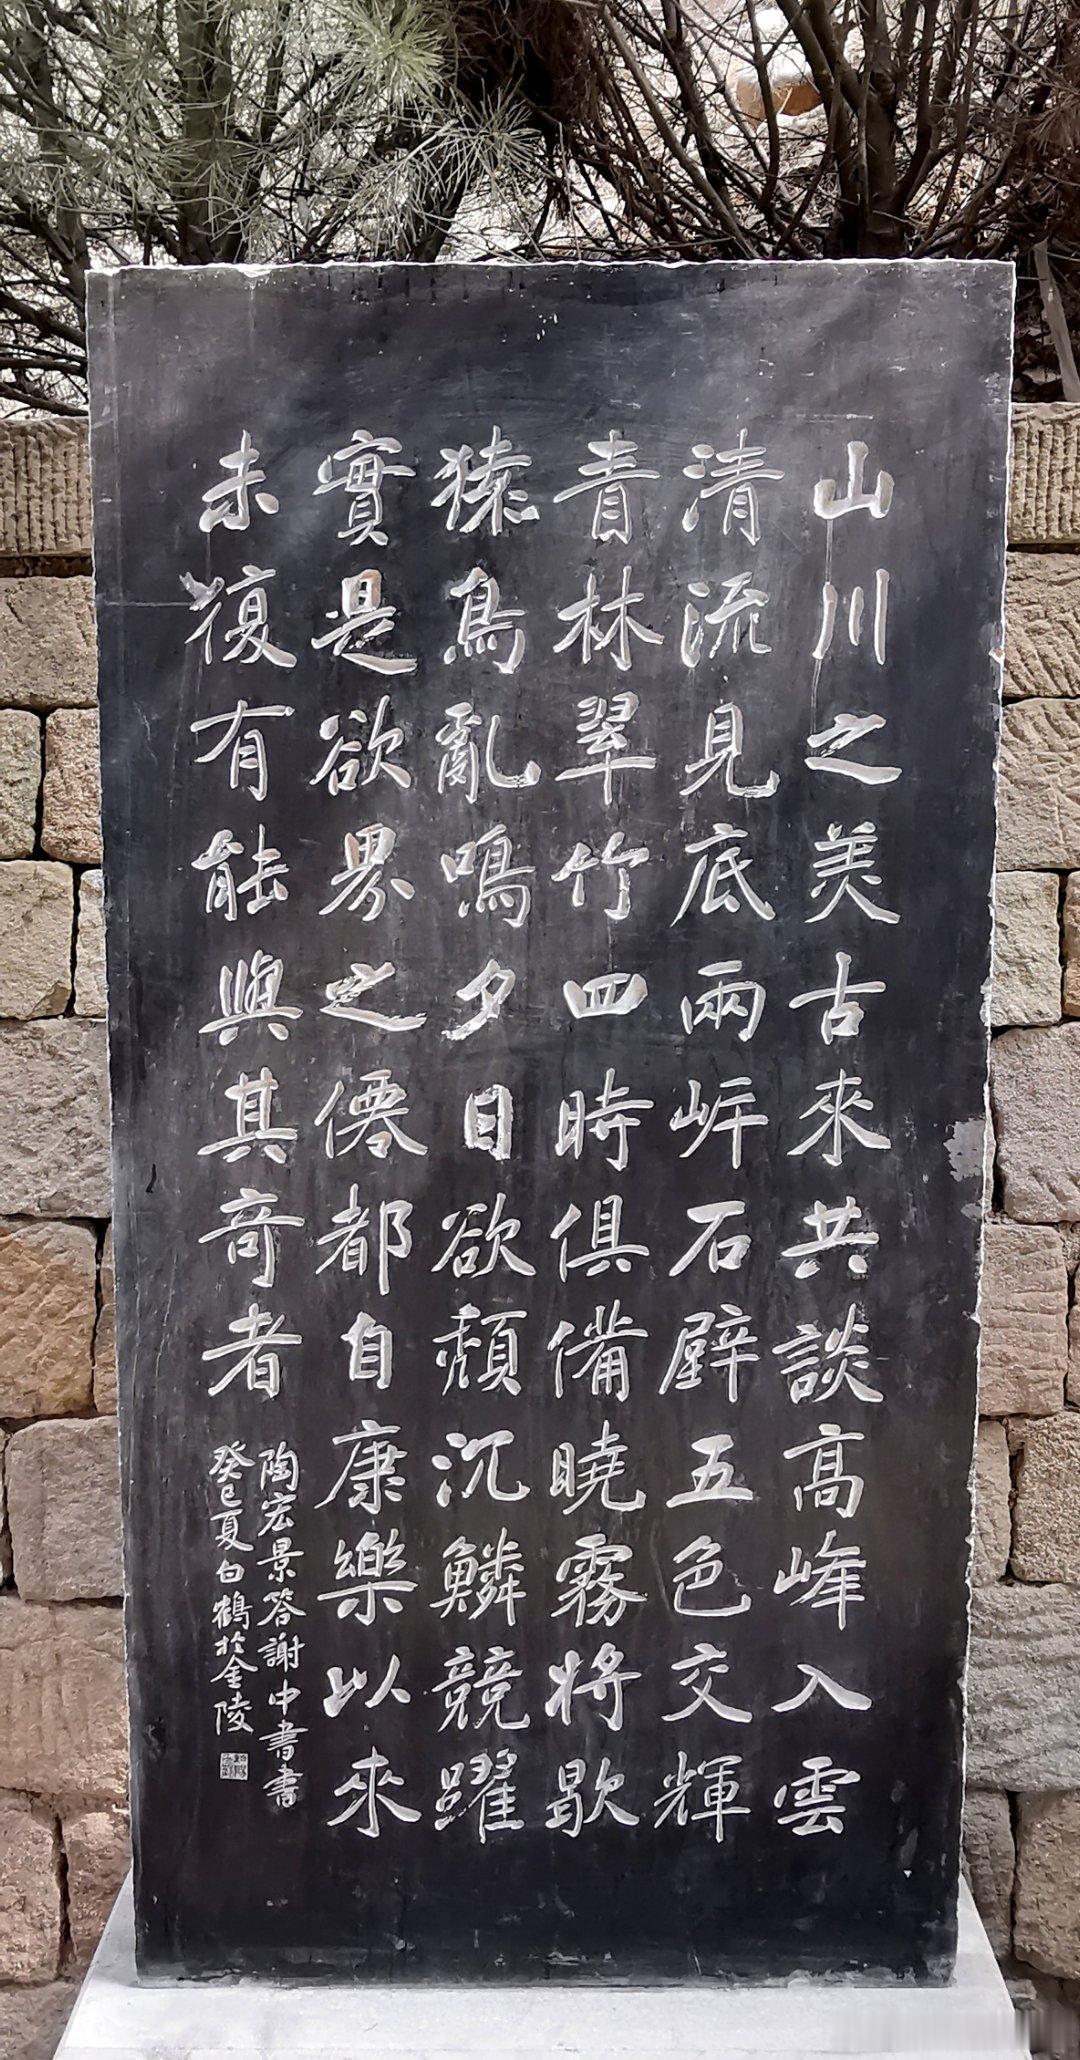 山川之美古來共談高峰入雲
清流見底兩岸石壁五色交輝
青林翠竹四時俱備曉霧將歇
猿鳥亂鳴夕日欲頹沉鱗競躍
實是欲界之僊都自康樂以來
未復有能與其奇者
陶宏景答謝中書書
癸巳夏白鶴於金陵